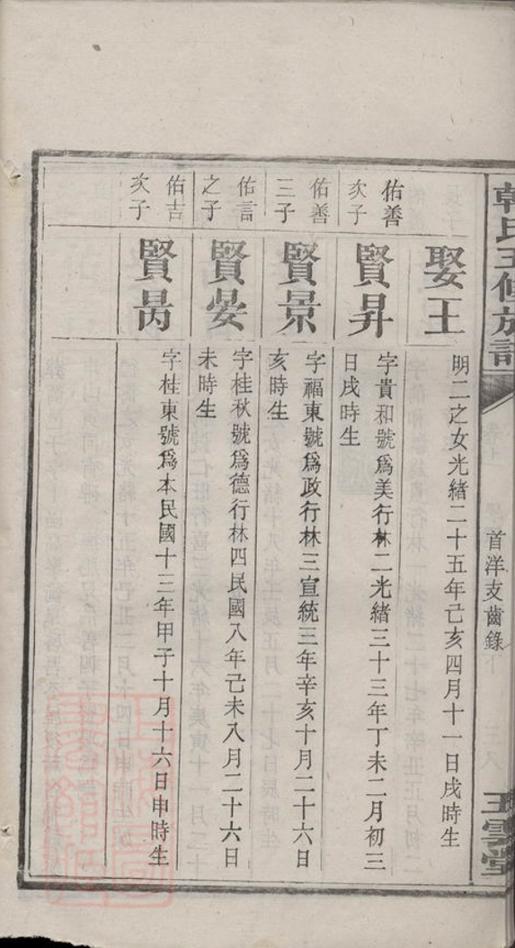 韓氏五修族譜
首洋支齒錄
玉雲堂
娶王
明二之女光緒二十五年己亥四月十一日戌時生
佑善
次子
賢昇
字貴和號爲美行林二光緒三十三年丁未二月初三
日戌時生
佑善
三子
賢景
字福東號爲政行林三宣統三年辛亥十月二十六日
亥時生
佑言
之子
賢晏
字桂秋號爲德行林四民國八年己未八月二十六日
未時生
佑吉
次子
賢昺
字桂東號爲本民國十三年甲子十月十六日申時生